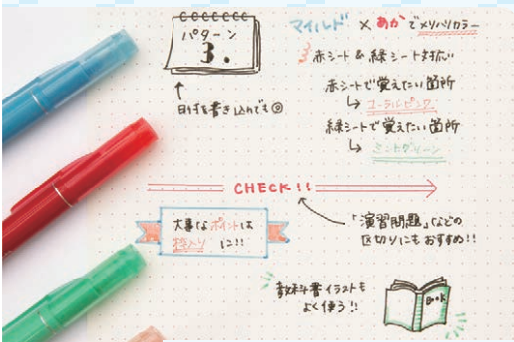 パターン
3.
日付を書き込んでも◎
マイルド × あか でメリハリカラー
赤シート & 緑シート対応♪
赤シートで覚えたい箇所
↳ コーラルピンク
緑シートで覚えたい箇所
↳ ミントグリーン
CHECK!!
大事なポイントは
枠入り に!!
「演習問題」などの
区切りにもおすすめ!!
教科書イラストも
よく使う!!
BOOK